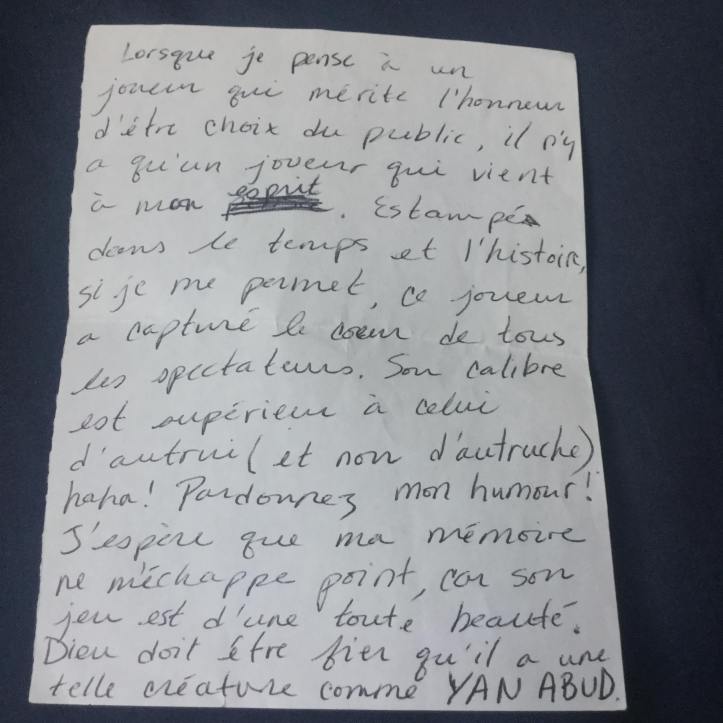 Lorsque je pense à un
joueur qui mérite l'honneur
d'être choix du public, il n'y
a qu'un joueur qui vient
à mon esprit. Estampé
dans le temps et l'histoire,
si je me permet, ce joueur
a capturé le coeur de tous
les spectateurs. Son calibre
est supérieur à celui
d'autrui (et non d'autruche)
haha! Pardonnez mon humour!
J'espère que ma mémoire
ne m'échappe point, car son
jeu est d'une toute beauté.
Dieu doit être fier qu'il a une
telle créature comme YAN ABUD.